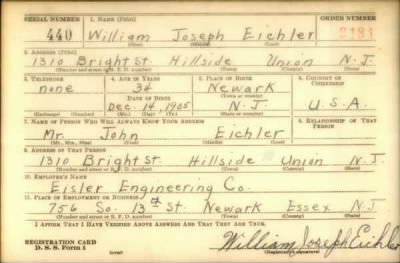 SERIAL NUMBER 1. NAME (Print) ORDER NUMBER
440 William Joseph Eichler
(First) (Middle) (Last)
2. ADDRESS (Print)
1310 Bright St. Hillside Union N.J.
(Number and street or R. F. D. number) (Town) (County) (State)
3. TELEPHONE 4. AGE IN YEARS 5. PLACE OF BIRTH 6. COUNTRY OF CITIZENSHIP
none 34 Newark
DATE OF BIRTH (Town or county)
Dec. 14, 1905 N.J. U.S.A.
(Exchange) (Number) (Mo.) (Day) (Yr.) (State or country)
7. NAME OF PERSON WHO WILL ALWAYS KNOW YOUR ADDRESS 8. RELATIONSHIP OF THAT PERSON
Mr. John Eichler
(Mr., Mrs., Miss) (First) (Middle) (Last)
9. ADDRESS OF THAT PERSON
1310 Bright St. Hillside Union N.J.
(Number and street or R. F. D. number) (Town) (County) (State)
10. EMPLOYER'S NAME
Eisler Engineering Co.
11. PLACE OF EMPLOYMENT OR BUSINESS
756 So. 13th St. Newark Essex N.J.
(Number and street or R. F. D. number) (Town) (County) (State)
I AFFIRM THAT I HAVE VERIFIED ABOVE ANSWERS AND THAT THEY ARE TRUE.
REGISTRATION CARD
D. S. S. Form 1 (over) William Joseph Eichler
(Registrant's signature)